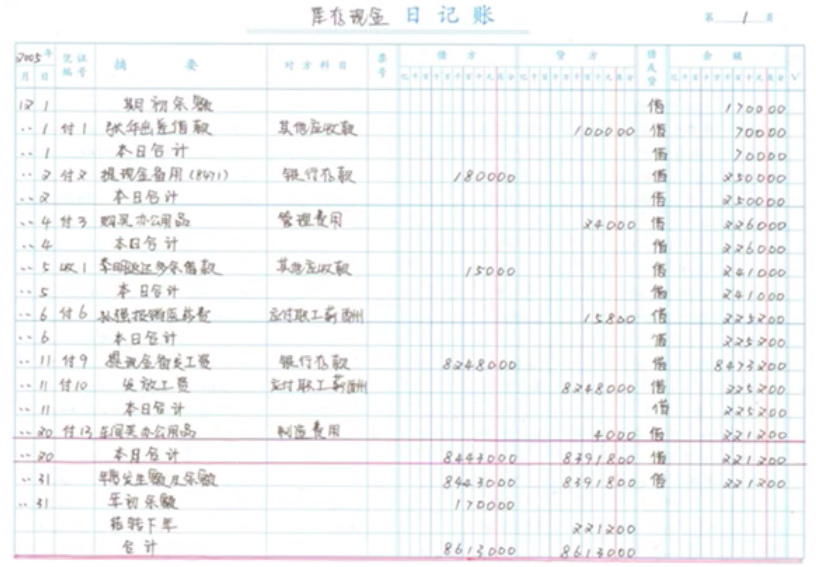 库存现金 日记账 第 1 页
2005年 凭证编号 摘要 对方科目 票号 借方 贷方 借或贷 余额 √
月 日 亿千百十万千百十元角分 亿千百十万千百十元角分 亿千百十万千百十元角分
12 1 期初余额 借 170000
〃 1 付1 张华出差借款 其他应收款 100000 借 70000
〃 1 本日合计 借 70000
〃 2 付2 提现金备用(8471) 银行存款 180000 借 250000
〃 2 本日合计 借 250000
〃 4 付3 购买办公用品 管理费用 24000 借 226000
〃 4 本日合计 借 226000
〃 5 收1 李明退还多余借款 其他应收款 15000 借 241000
〃 5 本日合计 借 241000
〃 6 付6 孙强报销医药费 应付职工薪酬 15800 借 225200
〃 6 本日合计 借 225200
〃 11 付9 提现金备发工资 银行存款 8248000 借 8473200
〃 11 付10 发放工资 应付职工薪酬 8248000 借 225200
〃 11 本日合计 借 225200
〃 20 付13 车间买办公用品 制造费用 4000 借 221200
〃 20 本日合计 8443000 8391800 借 221200
〃 31 发生额及余额 8443000 8391800 借 221200
〃 31 年初余额 170000
结转下年 221200
合计 8613000 8613000